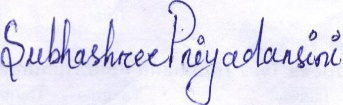 Subhashree Priyadarsini